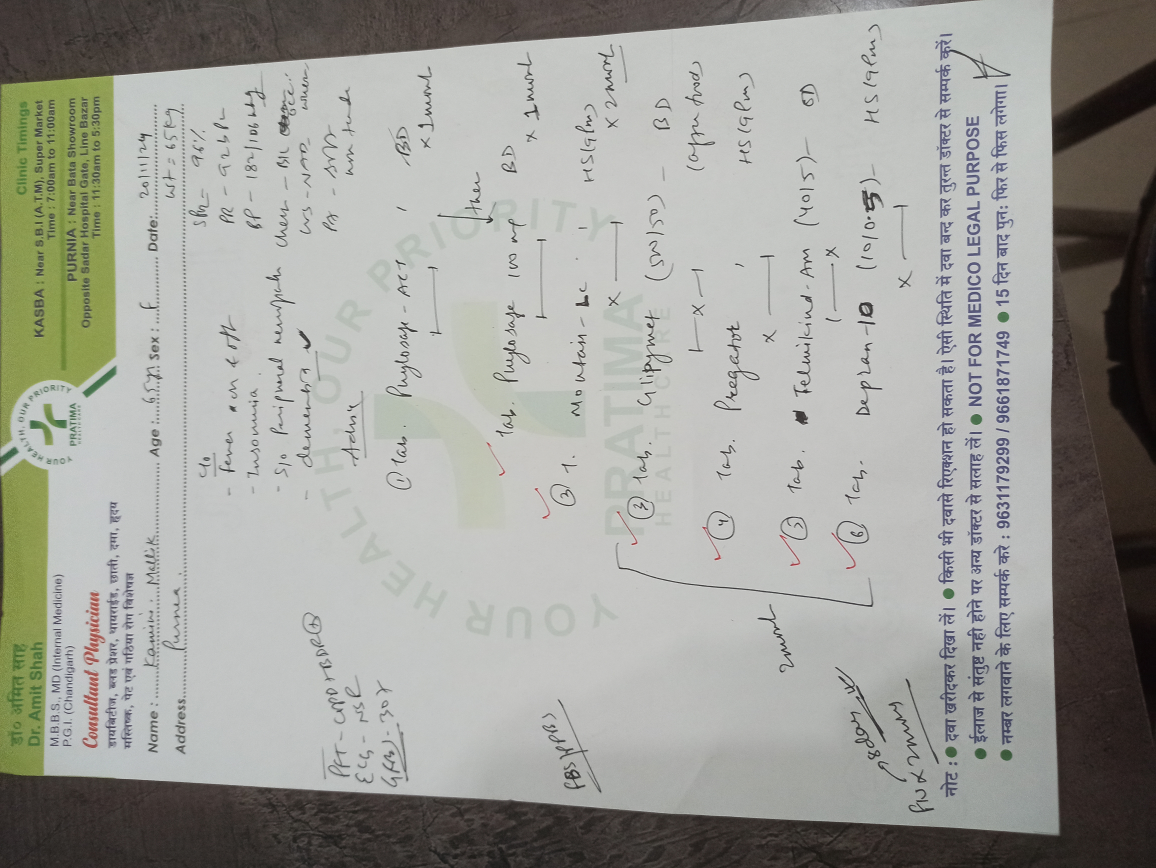 डॉ० अमित साह
Dr. Amit Shah
M.B.B.S., MD (Internal Medicine)
P.G.I. (Chandigarh)
Consultant Physician
डायबिटीज, ब्लड प्रेशर, थायराईड, छाती, दमा, हृदय
मस्तिष्क, पेट एवं गठिया रोग विशेषज्ञ
YOUR HEALTH, OUR PRIORITY
PRATIMA
HEALTHCARE
Clinic Timings
KASBA : Near S.B.I. (A.T.M), Super Market
Time : 7:00am to 11:00am
PURNIA : Near Bata Showroom
Opposite Sadar Hospital Gate, Line Bazar
Time : 11:30am to 5:30pm
Name : Kamini Mallik Age : 65y Sex : F Date: 20/11/24
Address Purnea. wt = 65kg
c/o
- Fever on & off
- Insomnia
- S/o Peripheral
- dementia
SPO2 = 96%
PR - 92
BP - 182/106
Chest - B/L
PFT - COPD + BDR
ECG - NSR
Advice
① Tab. Phylosage - ACT 1 BD
x 1 month
then
Tab. Phylosage 100 mg BD
x 1 month
② T. Montair - Lc 1 HS (9 Pm)
x x 2 month
FBS/PPBS
③ Tab. Glipymet (500/50) - BD
x (after food)
④ Tab. Pregator 1 HS (9 Pm)
x
2 month
⑤ Tab. Telmikind-Am (40/5) - OD
x
⑥ Tab. Deplan-10 (10/0.5) - HS (9 Pm)
x
YOUR HEALTH, OUR PRIORITY
PRATIMA
HEALTHCARE
नोट : ● दवा खरीदकर दिखा लें। ● किसी भी दवासे रिएक्शन हो सकता है। ऐसी स्थिति में दवा बन्द कर तुरन्त डॉक्टर से सम्पर्क करें।
● ईलाज से संतुष्ट नही होने पर अन्य डॉक्टर से सलाह लें। ● NOT FOR MEDICO LEGAL PURPOSE
● नम्बर लगवाने के लिए सम्पर्क करे : 9631179299 / 9661871749 ● 15 दिन बाद पुनः फिर से फिस लगेगा।